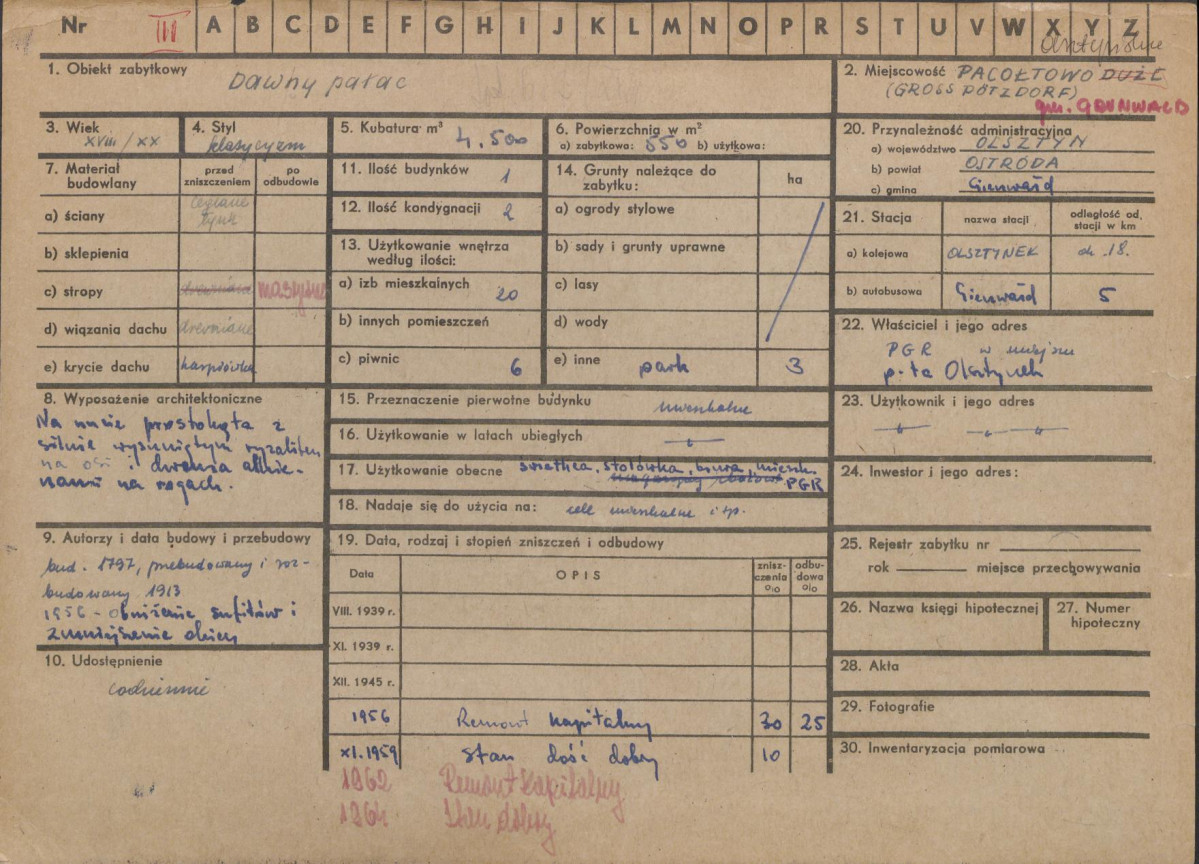 Nr III A B C D E F G H I J K L M N O P R S T U V W X Y Z
1. Obiekt zabytkowy
Dawny pałac
2. Miejscowość PACOŁTOWO DUŻE
(GROSS PÖTZDORF)
gm. GRUNWALD
3. Wiek
XVIII/XX
4. Styl
klasycyzm
5. Kubatura m³
4.500
6. Powierzchnia w m²
a) zabytkowa: 550 b) użytkowa:
7. Materiał budowlany
przed zniszczeniem
po odbudowie
a) ściany
ceglane
tynk
b) sklepienia
c) stropy drewniane masywne
d) wiązania dachu drewniane
e) krycie dachu karpiówka
8. Wyposażenie architektoniczne
Na rzucie prostokąta z
silnie wysuniętym ryzalitem
na osi i dwoma
na rogach.
9. Autorzy i data budowy i przebudowy
bud. 1797, przebudowany i roz-
budowany 1913
1956 - obniżenie sufitów i
zmniejszenie okien
10. Udostępnienie
codziennie
11. Ilość budynków 1
12. Ilość kondygnacji 2
13. Użytkowanie wnętrza
według ilości:
a) izb mieszkalnych 20
b) innych pomieszczeń
c) piwnic 6
14. Grunty należące do
zabytku:
ha
a) ogrody stylowe
b) sady i grunty uprawne
c) lasy
d) wody
e) inne park 3
15. Przeznaczenie pierwotne budynku mieszkalne
16. Użytkowanie w latach ubiegłych
17. Użytkowanie obecne świetlica, stołówka, biura, mieszk.
PGR
18. Nadaje się do użycia na: cele mieszkalne i tp.
19. Data, rodzaj i stopień zniszczeń i odbudowy
Data
OPIS
znisz-
czenia
o/o
odbu-
dowa
o/o
VIII. 1939 r.
XI. 1939 r.
XII. 1945 r.
1956 Remont kapitalny 30 25
XI.1959 stan dość dobry 10
1962 Remont kapitalny
1964 Stan dobry
20. Przynależność administracyjna
a) województwo OLSZTYN
b) powiat OSTRÓDA
c) gmina Gierwałd
21. Stacja
nazwa stacji
odległość od
stacji w km
a) kolejowa OLSZTYNEK ok. 18.
b) autobusowa Gierwałd 5
22. Właściciel i jego adres
PGR w miejscu
p-ta Olsztynek
23. Użytkownik i jego adres
24. Inwestor i jego adres:
25. Rejestr zabytku nr
rok miejsce przechowywania
26. Nazwa księgi hipotecznej
27. Numer
hipoteczny
28. Akta
29. Fotografie
30. Inwentaryzacja pomiarowa